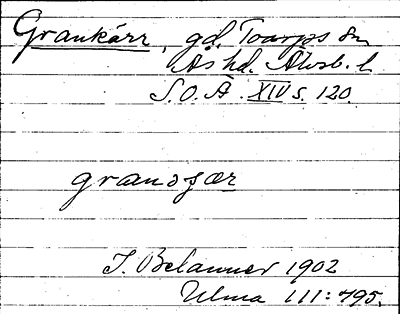 Grankärr, gd. Toarps sn
Ås hd. Älvsb. l.
S.O.Ä. XIV s. 120.
granɔʃær
I. Belanner 1902
Ulma 111:795.